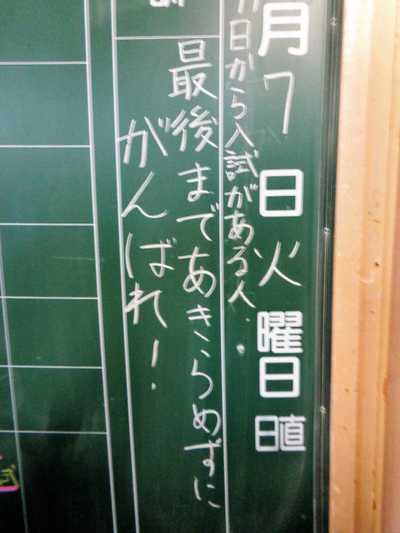 月7日火曜日 日直
今日から入試がある人、
最後まであきらめずに
がんばれー!